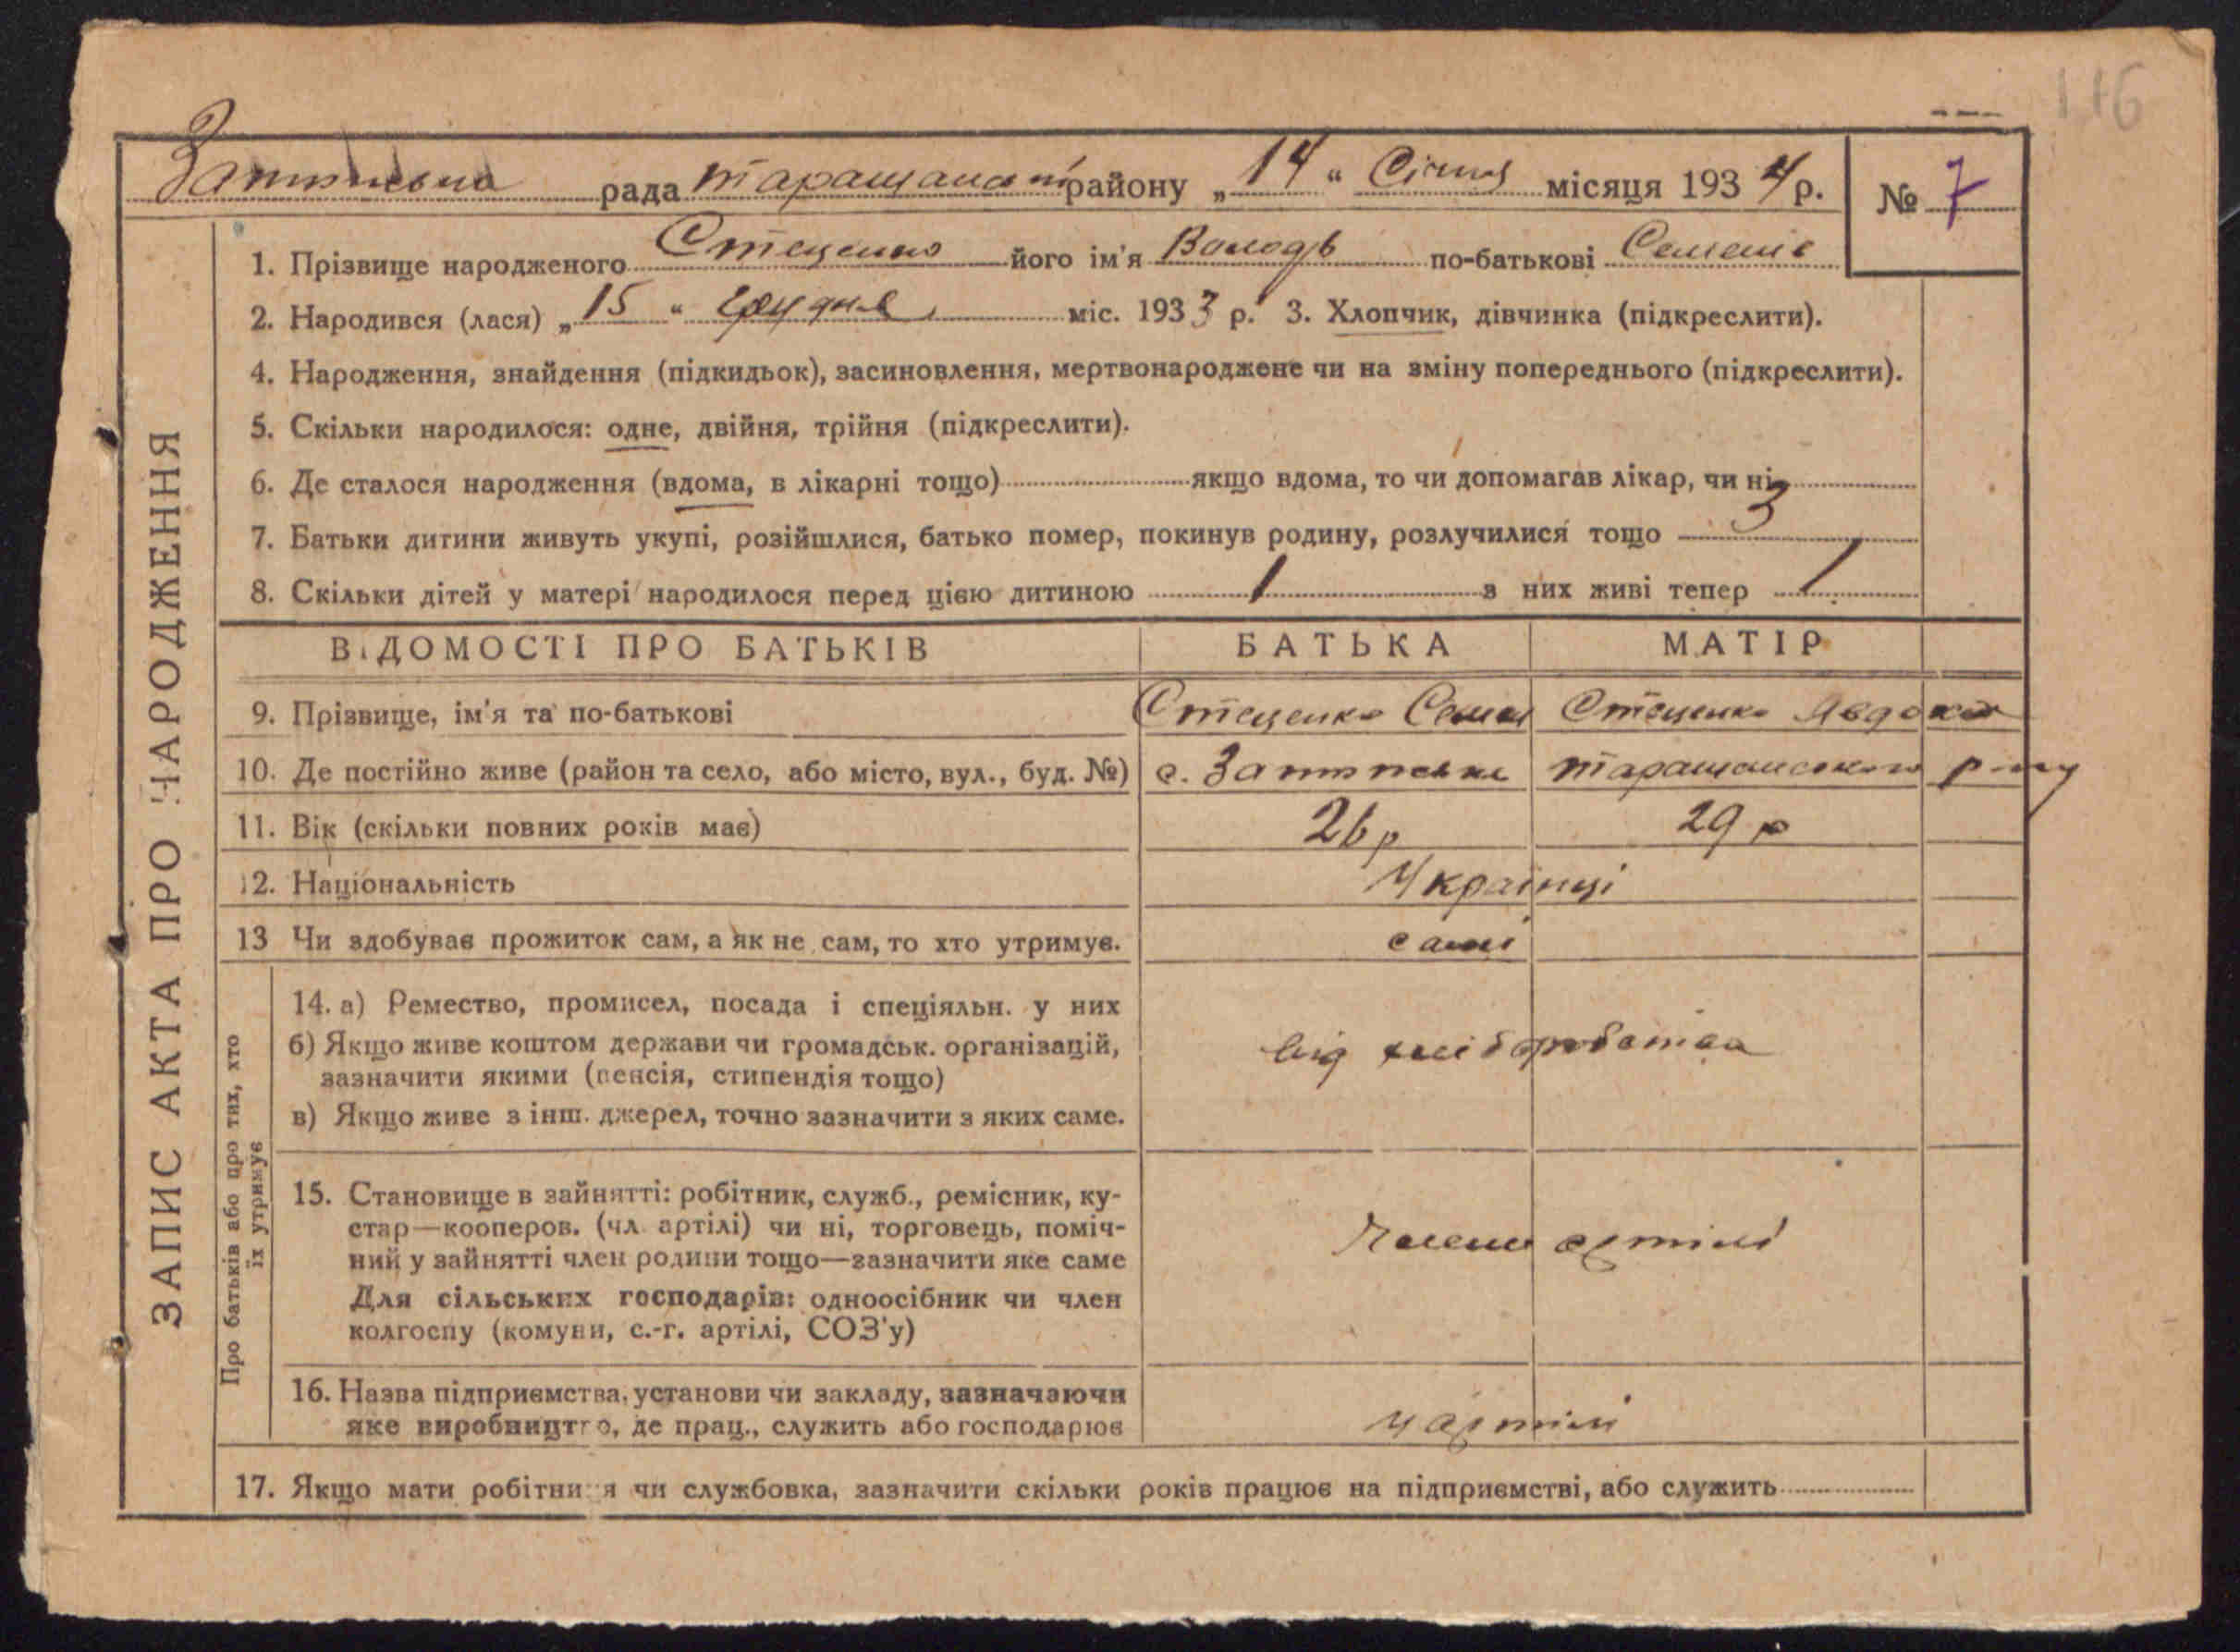 116
рада таращанськ району „14“ Січня місяця 1934 р. № 7
ЗАПИС АКТА ПРО НАРОДЖЕННЯ
1. Прізвище народженого Стеценко його ім'я Володь по-батькові Семенів
2. Народився (лася) „15“ грудня міс. 1933 р. 3. Хлопчик, дівчинка (підкреслити).
4. Народження, знайдення (підкидьок), засиновлення, мертвонароджене чи на зміну попереднього (підкреслити).
5. Скільки народилося: одне, двійня, трійня (підкреслити).
6. Де сталося народження (вдома, в лікарні тощо) якщо вдома, то чи допомагав лікар, чи ні
7. Батьки дитини живуть укупі, розійшлися, батько помер, покинув родину, розлучилися тощо 3
8. Скільки дітей у матері народилося перед цією дитиною 1 з них живі тепер 1
ВІДОМОСТІ ПРО БАТЬКІВ БАТЬКА МАТІР
9. Прізвище, ім'я та по-батькові Стеценко Семен Стеценко Явдоха
10. Де постійно живе (район та село, або місто, вул., буд. №) с. таращанського р-ну
11. Вік (скільки повних років має) 26 р 29 р
12. Національність Українці
13 Чи здобуває прожиток сам, а як не сам, то хто утримує. самі
Про батьків або про тих, хто
їх утримує
14. а) Ремество, промисел, посада і спеціяльн. у них
б) Якщо живе коштом держави чи громадськ. організацій,
зазначити якими (пенсія, стипендія тощо)
від хліборобства
в) Якщо живе з інш. джерел, точно зазначити з яких саме.
15. Становище в зайнятті: робітник, служб., ремісник, ку-
стар—кооперов. (чл. артілі) чи ні, торговець, поміч-
ний у зайнятті член родини тощо—зазначити яке саме
Члени артілі
Для сільських господарів: одноосібник чи член
колгоспу (комуни, с.-г. артілі, СОЗ'у)
16. Назва підприємства, установи чи закладу, зазначаючи
яке виробництво, де прац., служить або господарює
У артілі
17. Якщо мати робітниця чи службовка, зазначити скільки років працює на підприємстві, або служить